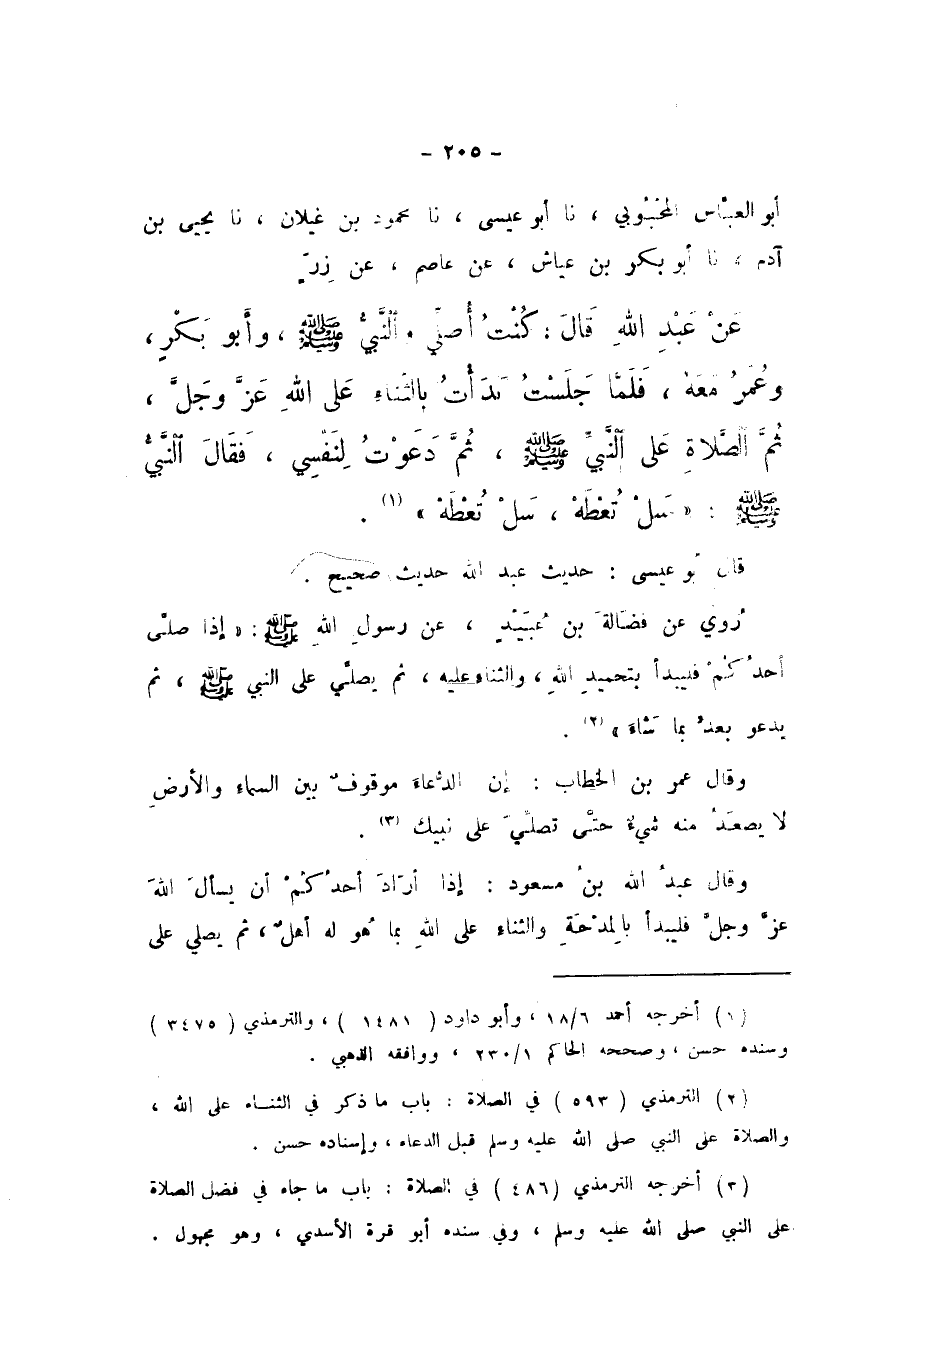 - ٢٠٥ -
أبو العبَّاس المحبُوبي ، نا أبو عيسى ، نا محمود بن غيلان ، نا يحيى بن
آدم ، نا أبو بكر بن عياش ، عن عاصم ، عن زِرٍّ
عَنْ عَبْدِ اللهِ قَالَ : كُنْتُ أُصلِّي والنَّبِيُّ ﷺ ، وأَبو بَكْرٍ ،
وعُمَرُ مَعَهُ ، فَلَمَّا جَلَسْتُ بَدَأْتُ بالثَّناءِ عَلى اللهِ عَزَّ وَجَلَّ ،
ثُمَّ الصَّلاةِ عَلى النَّبيِّ ﷺ ، ثُمَّ دَعَوْتُ لِنَفْسِي ، فَقَالَ النَّبيُّ
ﷺ : « سَلْ تُعْطَهْ ، سَلْ تُعْطَهْ » (١) .
قال أبو عيسى : حديث عبد الله حديث صحيح .
رُوي عن فضَالةَ بن عُبَيْدٍ ، عن رسولِ اللهِ ﷺ : « إذا صلَّى
أحدُكمْ فليبدأ بتحميدِ اللهِ ، والثناء عليه ، ثم يصلِّي على النبي ﷺ ، ثم
يدعو بعدُ بما شاءَ » (٢) .
وقال عمر بن الخطاب : إن الدُّعاءَ موقوفٌ بين السماء والأرضِ
لا يصعَدُ منه شيءٌ حتَّى تصلِّيَ على نبيك (٣) .
وقال عبدُ الله بنُ مسعود : إذا أرَادَ أحدُكمْ أن يسألَ اللهَ
عزَّ وجلَّ فليبدأ بالمدْحَةِ والثناءِ على اللهِ بما هُو له أهلٌ ، ثم يصلي على
(١) أخرجه أحمد ١٨/٦ ، وأبو داود ( ١٤٨١ ) ، والترمذي ( ٣٤٧٥ )
وسنده حسن ، وصححه الحاكم ٢٣٠/١ ، ووافقه الذهبي .
(٢) الترمذي ( ٥٩٣ ) في الصلاة : باب ما ذكر في الثناء على الله ،
والصلاة على النبي صلى الله عليه وسلم قبل الدعاء ، وإسناده حسن .
(٣) أخرجه الترمذي (٤٨٦ ) في الصلاة : باب ما جاء في فضل الصلاة
على النبي صلى الله عليه وسلم ، وفي سنده أبو قرة الأسدي ، وهو مجهول .